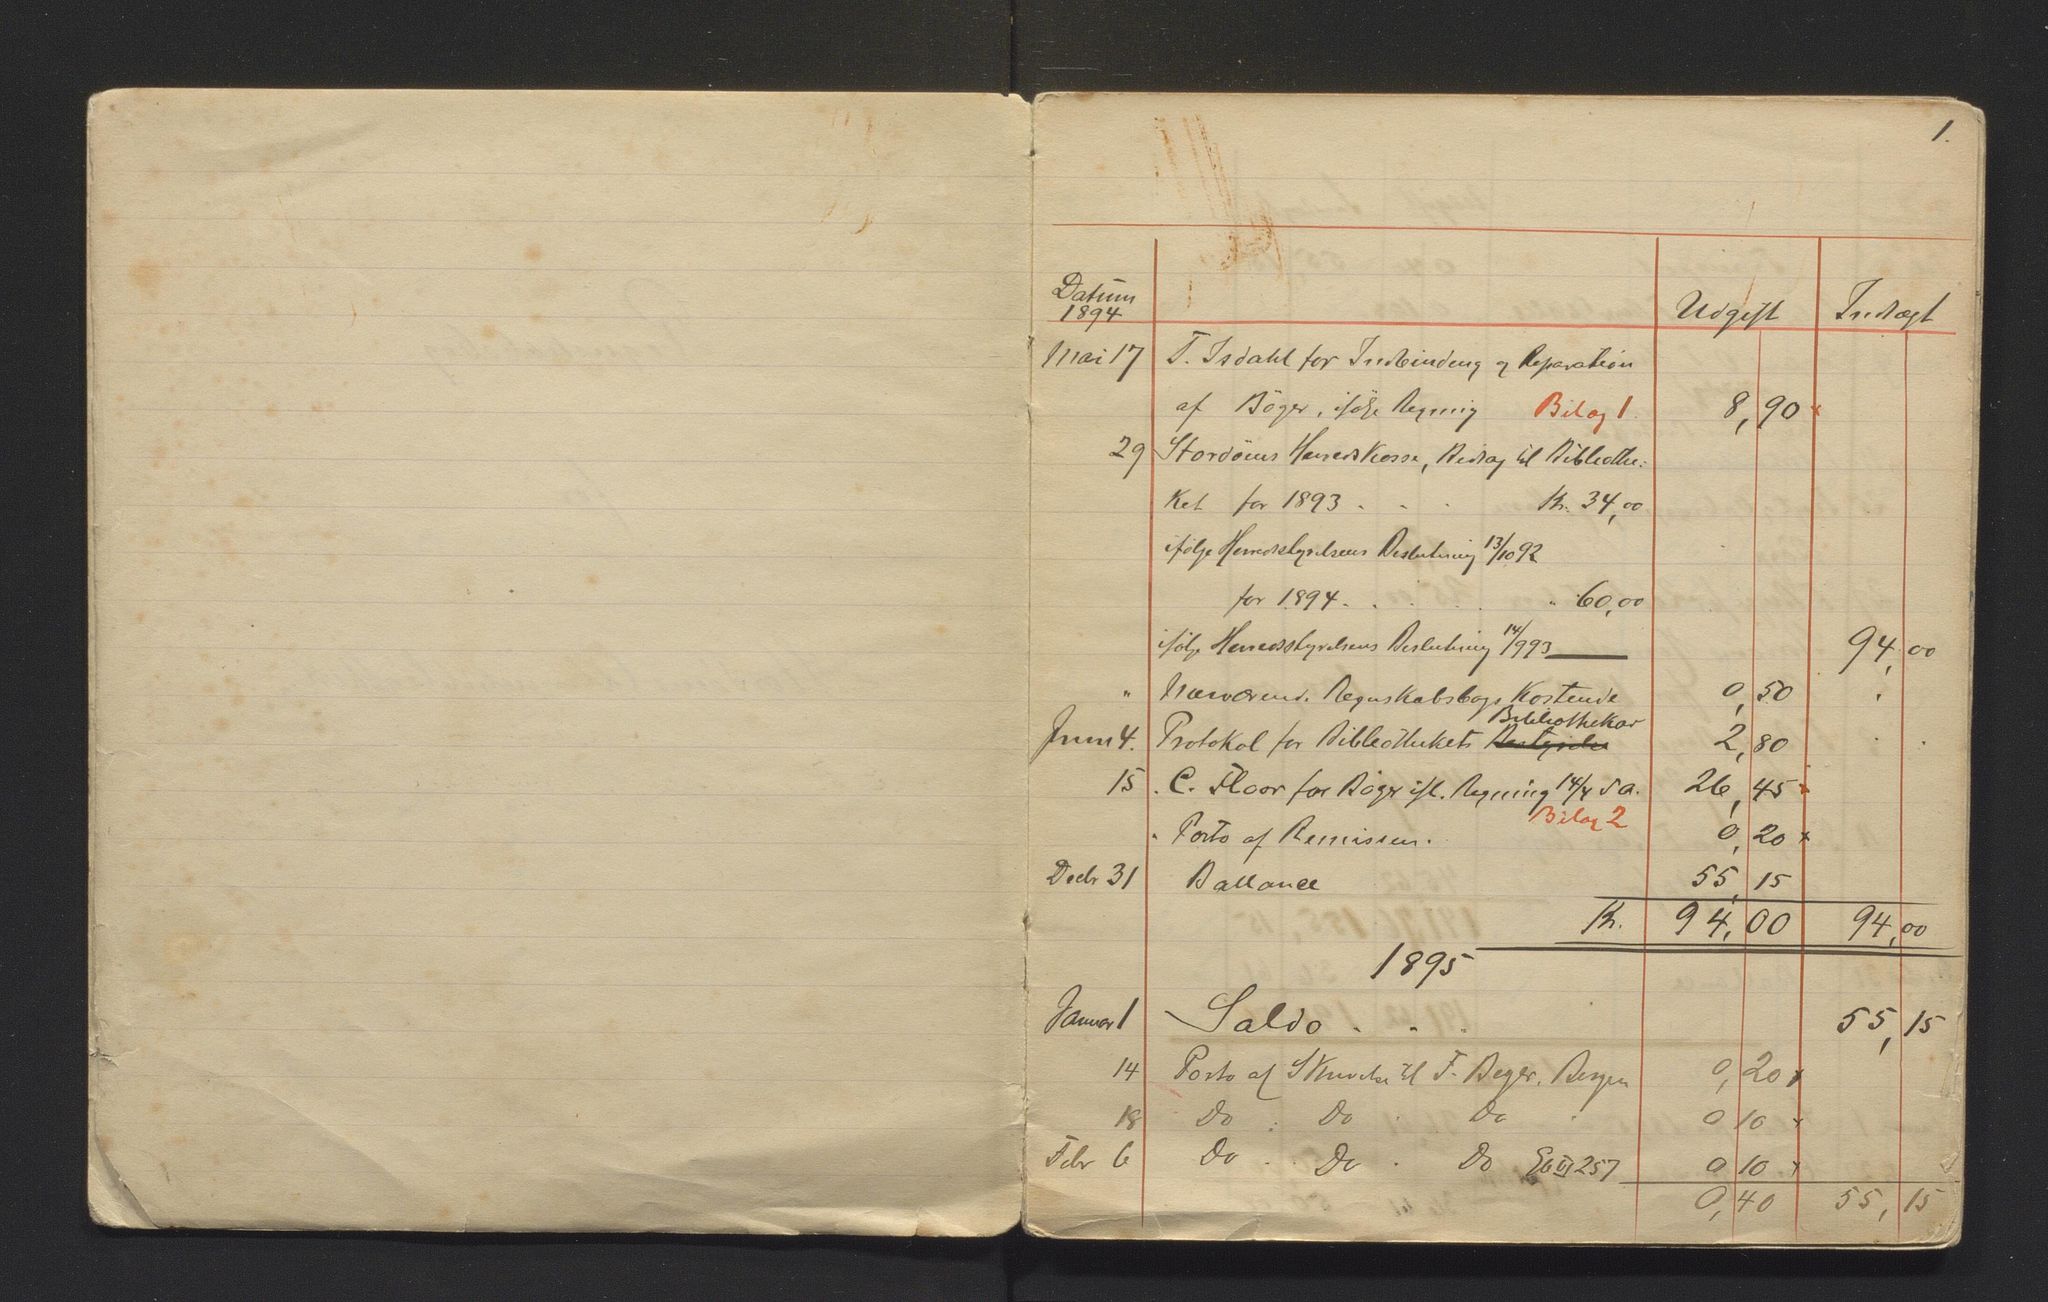 1.
Datum 1894 Udgift Indtægt
Mai 17 T. Isdahl for Indbinding og Reparation
af Böger, ifölge Regning Bilag 1 8,90 x
29 Stordöens Herredskasse, Bidrag til Bibliothe-
ket for 1893 . . . Kr. 34,00
ifölge Herredsstyrelsens Beslutning 13/10 92
for 1894 . . . . " 60,00
ifölge Herredsstyrelsens Beslutning 14/9 93 94,00
" Nærværende Regnskabsbogs Kostende 0,50
Bibliothekar
Juni 4. Protokol for Bibliothekets Bestyrelse 2,80
15 C. Floor for Böger ifl. Regning 14/4 d.a. 26,45 x
Bilag 2
" Porto af Remissen. 0,20 x
Decbr 31 Ballance 55,15
Kr. 94,00 94,00
1895
Januar 1 Saldo . . . 55,15
14 Porto af Skrivelse til F. Beyer, Bergen 0,20 x
18 Do . Do . Do . 0 10 x
Febr 6 Do . . Do . Do 257 0 10 x
0,40 55,15